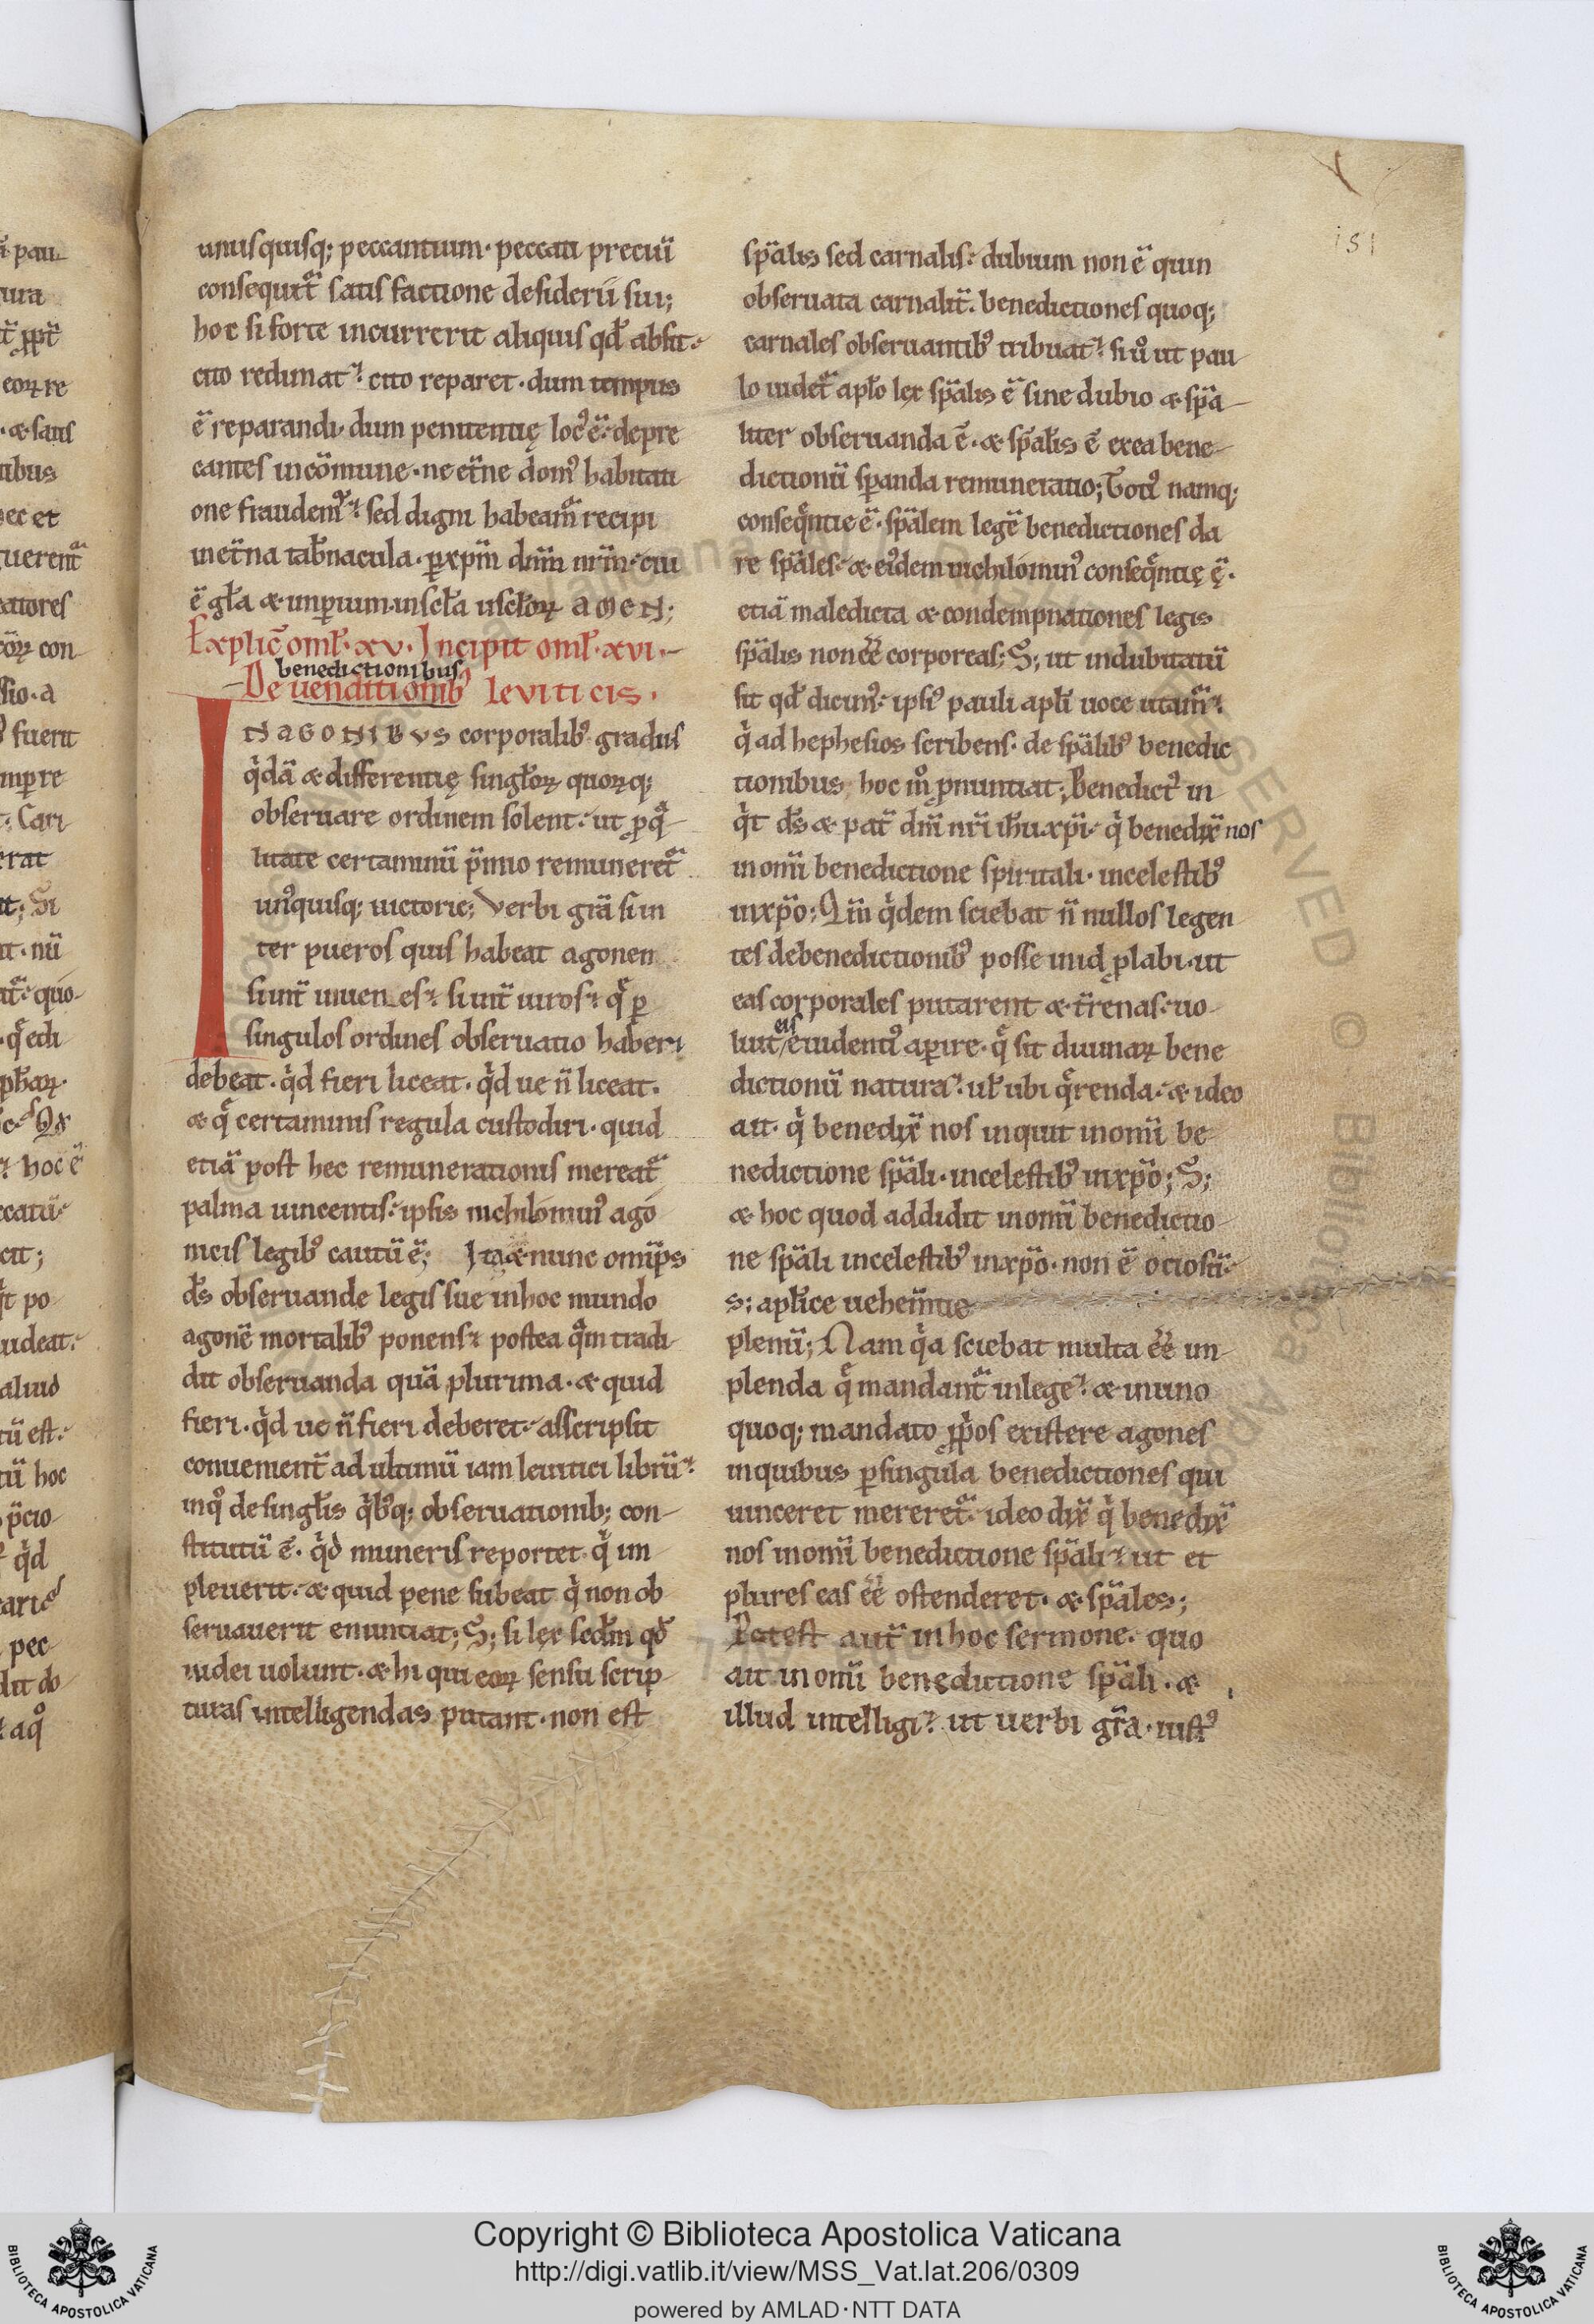 unusquisq; peccantium· peccati preciū
consequit᷑ satisfactione desiderii sui;
hoc si forte incurrerit aliquis qd̄ absit·
cito redimat· cito reparet· dum tempus
ē reparandi· dum penitentię loc᷒ ē· depre
cantes in cōmune· ne et̄ne dom᷒ habitati
one fraudem᷒· sed digni habeam᷒ recipi
in et̄na tab̄nacula· ꝑ xp̄m dn̄m nr̄m· cui
ē gl̄a & imꝑium· in scl̄a usclōꝝ AMEN;
Explic̄ oml̄· xv· Incipit oml̄· xvi·
benedictionibus
De venditionib᷒ leviticis·
IN AGONIBVS corporalib᷒ gradus
q̇dā & differentię singl̄oꝝ quoꝝq;
obseruare ordinem solent· ut ꝓ qͣ
litate certaminū p̄mio remuneret᷑
un᷒quisq; uictorie; Verbi grā si in
ter pueros quis habeat agonem
si int̄ iuuenes· si int̄ uiros· q̄ ꝑ
singulos ordines obseruatio haberi
debeat· q̇d fieri liceat· q̇d ue n̄ liceat·
& q̄ certaminis regula custodiri· quid
etiā post hec remunerationis mereat᷑
palma uincentis· ipsis nichilomin᷒ ago
nicis legib᷒ cautū ē; Ita & nunc omīps
ds̄ obseruande legis sue in hoc mundo
agonē mortalib᷒ ponens· postea qͣm tradi
dit obseruanda quā plurima· & quid
fieri· q̇d ue n̄ fieri deberet· asscripsit
conuenient̄ ad ultimū iam leuitici librū·
in qͦ de singl̄is q̇b᷒q; obseruationib; con
stitutū ē· q̇d muneris reportet q̇ im
pleuerit· & quid pene subeat q̇ non ob
seruauerit enuntiat; S; si lex scd̄m qd̄
iudei uolunt· & hi qui eoꝝ sensu scrip
turas intelligendas putant· non est
151
sp̄alis sed carnalis· dubium non ē quin
obseruata carnalit̄· benedictiones quoq;
carnales obseruantib᷒ tribuat· si uͦ ut pau
lo uidet᷑ apl̄o lex sp̄alis ē sine dubio & sp̄a
liter obseruanda ē· & sp̄alis ē ex ea bene
dictionū sꝑanda remuneratio; Toti᷒ namq;
conseq̄ntie ē· sp̄alem legē benedictiones da
re sp̄ales· & ei᷒dem nichilomin᷒ conseq̄ntię ę·
etiā maledicta & condempnationes legis
sp̄alis non ēē corporeas; S; ut indubitatū
sit qd̄ dicim᷒· ipsi᷒ pauli apl̄i uoce utam᷒·
q̇ ad hephesios scribens· de sp̄alib᷒ benedic
tionibus· hoc mͦ ꝓnuntiat; Benedict᷒ in
q̇t ds̄ & pat̄ dn̄i nr̄i ih̄u xp̄i· q̇ benedix̄ nos
in omī benedictione spiritali· in celestib᷒
in xp̄o; Qm̄ q̇dem sciebat n̄ nullos legen
tes de benedictionib᷒ posse in id ꝓlabi· ut
eas corporales putarent & t̄renas· uo
eis
luit euidenti᷒ aꝑire· q̄ sit diuinaꝝ bene
dictionū natura· ul̄ ubi q̄renda· & ideo
ait· q̇ benedix̄ nos inquit in omī be
nedictione sp̄ali· in celestib᷒ in xp̄o; S;
& hoc quod addidit in omī benedictio
ne sp̄ali in celestib᷒ in xp̄o· non ē ociosū·
s; apl̄ice uehem̄tie
plenū; Nam q̇a sciebat multa ēē im
plenda q̄ mandant᷑ in lege· & in uno
quoq; mandato ꝓp̄os existere agones
in quibus ꝑ singula benedictiones qui
uinceret mereret᷑· ideo dix̄ q̇ benedix̄
nos in omī benedictione sp̄ali· ut et
plures eas ēē ostenderet· & sp̄ales;
Potest aut̄ in hoc sermone· quo
ait in omī benedictione sp̄ali· &
illud intelligi· ut uerbi gr̄a· iust᷒
Copyright © Biblioteca Apostolica Vaticana
http://digi.vatlib.it/view/MSS_Vat.lat.206/0309
powered by AMLAD·NTT DATA
BIBLIOTECA APOSTOLICA VATICANA
BIBLIOTECA APOSTOLICA VATICANA